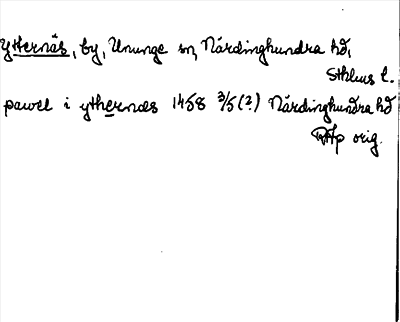 Ytternäs, by, Ununge sn, Närdinghundra hd,
Sthlms l.
pawel i ythernæs 1458 3/5 (2) Närdinghundra hd
RAp orig.